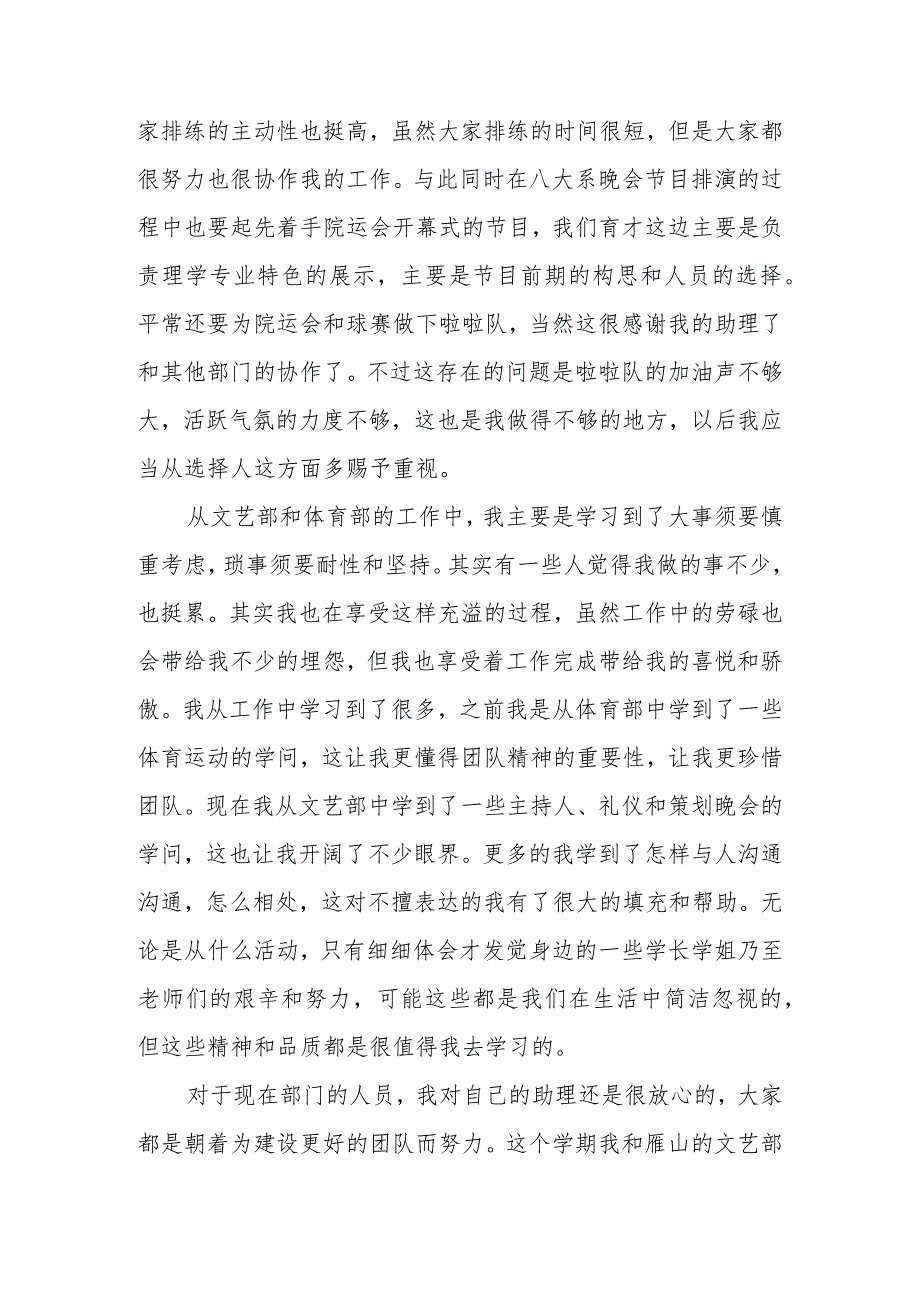 家排练的主动性也挺高，虽然大家排练的时间很短，但是大家都
很努力也很协作我的工作。与此同时在八大系晚会节目排演的过
程中也要起先着手院运会开幕式的节目，我们育才这边主要是负
责理学专业特色的展示，主要是节目前期的构思和人员的选择。
平常还要为院运会和球赛做下啦啦队，当然这很感谢我的助理了
和其他部门的协作了。不过这存在的问题是啦啦队的加油声不够
大，活跃气氛的力度不够，这也是我做得不够的地方，以后我应
当从选择人这方面多赐予重视。
从文艺部和体育部的工作中，我主要是学习到了大事须要慎
重考虑，琐事须要耐性和坚持。其实有一些人觉得我做的事不少，
也挺累。其实我也在享受这样充溢的过程，虽然工作中的劳碌也
会带给我不少的埋怨，但我也享受着工作完成带给我的喜悦和骄
傲。我从工作中学习到了很多，之前我是从体育部中学到了一些
体育运动的学问，这让我更懂得团队精神的重要性，让我更珍惜
团队。现在我从文艺部中学到了一些主持人、礼仪和策划晚会的
学问，这也让我开阔了不少眼界。更多的我学到了怎样与人沟通
沟通，怎么相处，这对不擅表达的我有了很大的填充和帮助。无
论是从什么活动，只有细细体会才发觉身边的一些学长学姐乃至
老师们的艰辛和努力，可能这些都是我们在生活中简洁忽视的，
但这些精神和品质都是很值得我去学习的。
对于现在部门的人员，我对自己的助理还是很放心的，大家
都是朝着为建设更好的团队而努力。这个学期我和雁山的文艺部